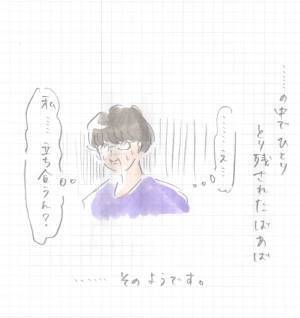 ……の中でひとり
とり残されたばあば
……え…
私……立ち合うん？
……そのようです。